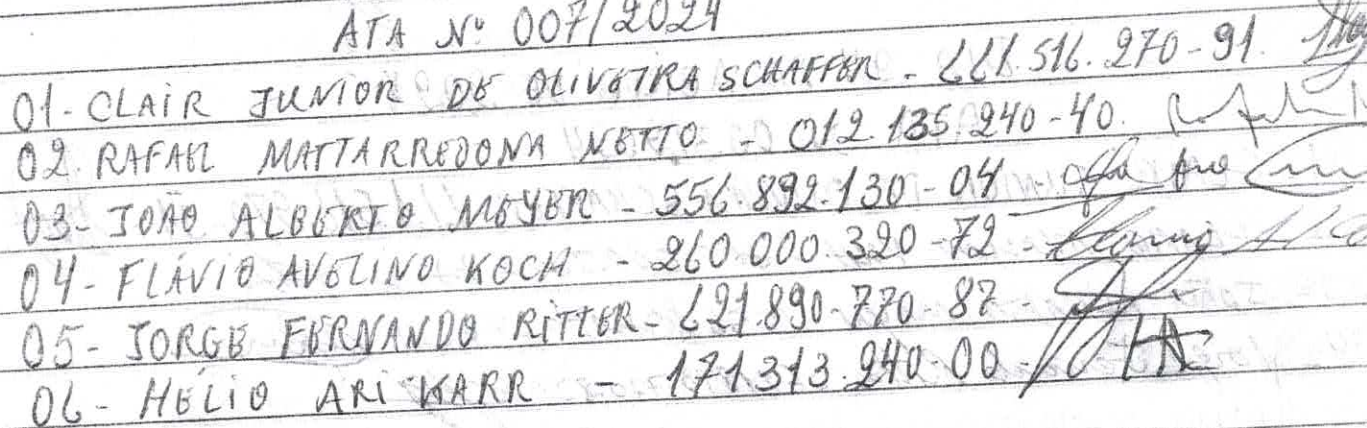 ATA Nº 007/2024
01- CLAIR JUNIOR DE OLIVEIRA SCHAFFER - 661.516.270-91.
02. RAFAEL MATTARREDONA NETTO - 012.135.240-40.
03- JOÃO ALBERTO MEYER - 556.892.130-04 -
04- FLÁVIO AVELINO KOCH - 260 000.320-72 -
05- JORGE FERNANDO RITTER - 621.890-770-87 -
06- HÉLIO ARI KARR - 171.313.240-00 -